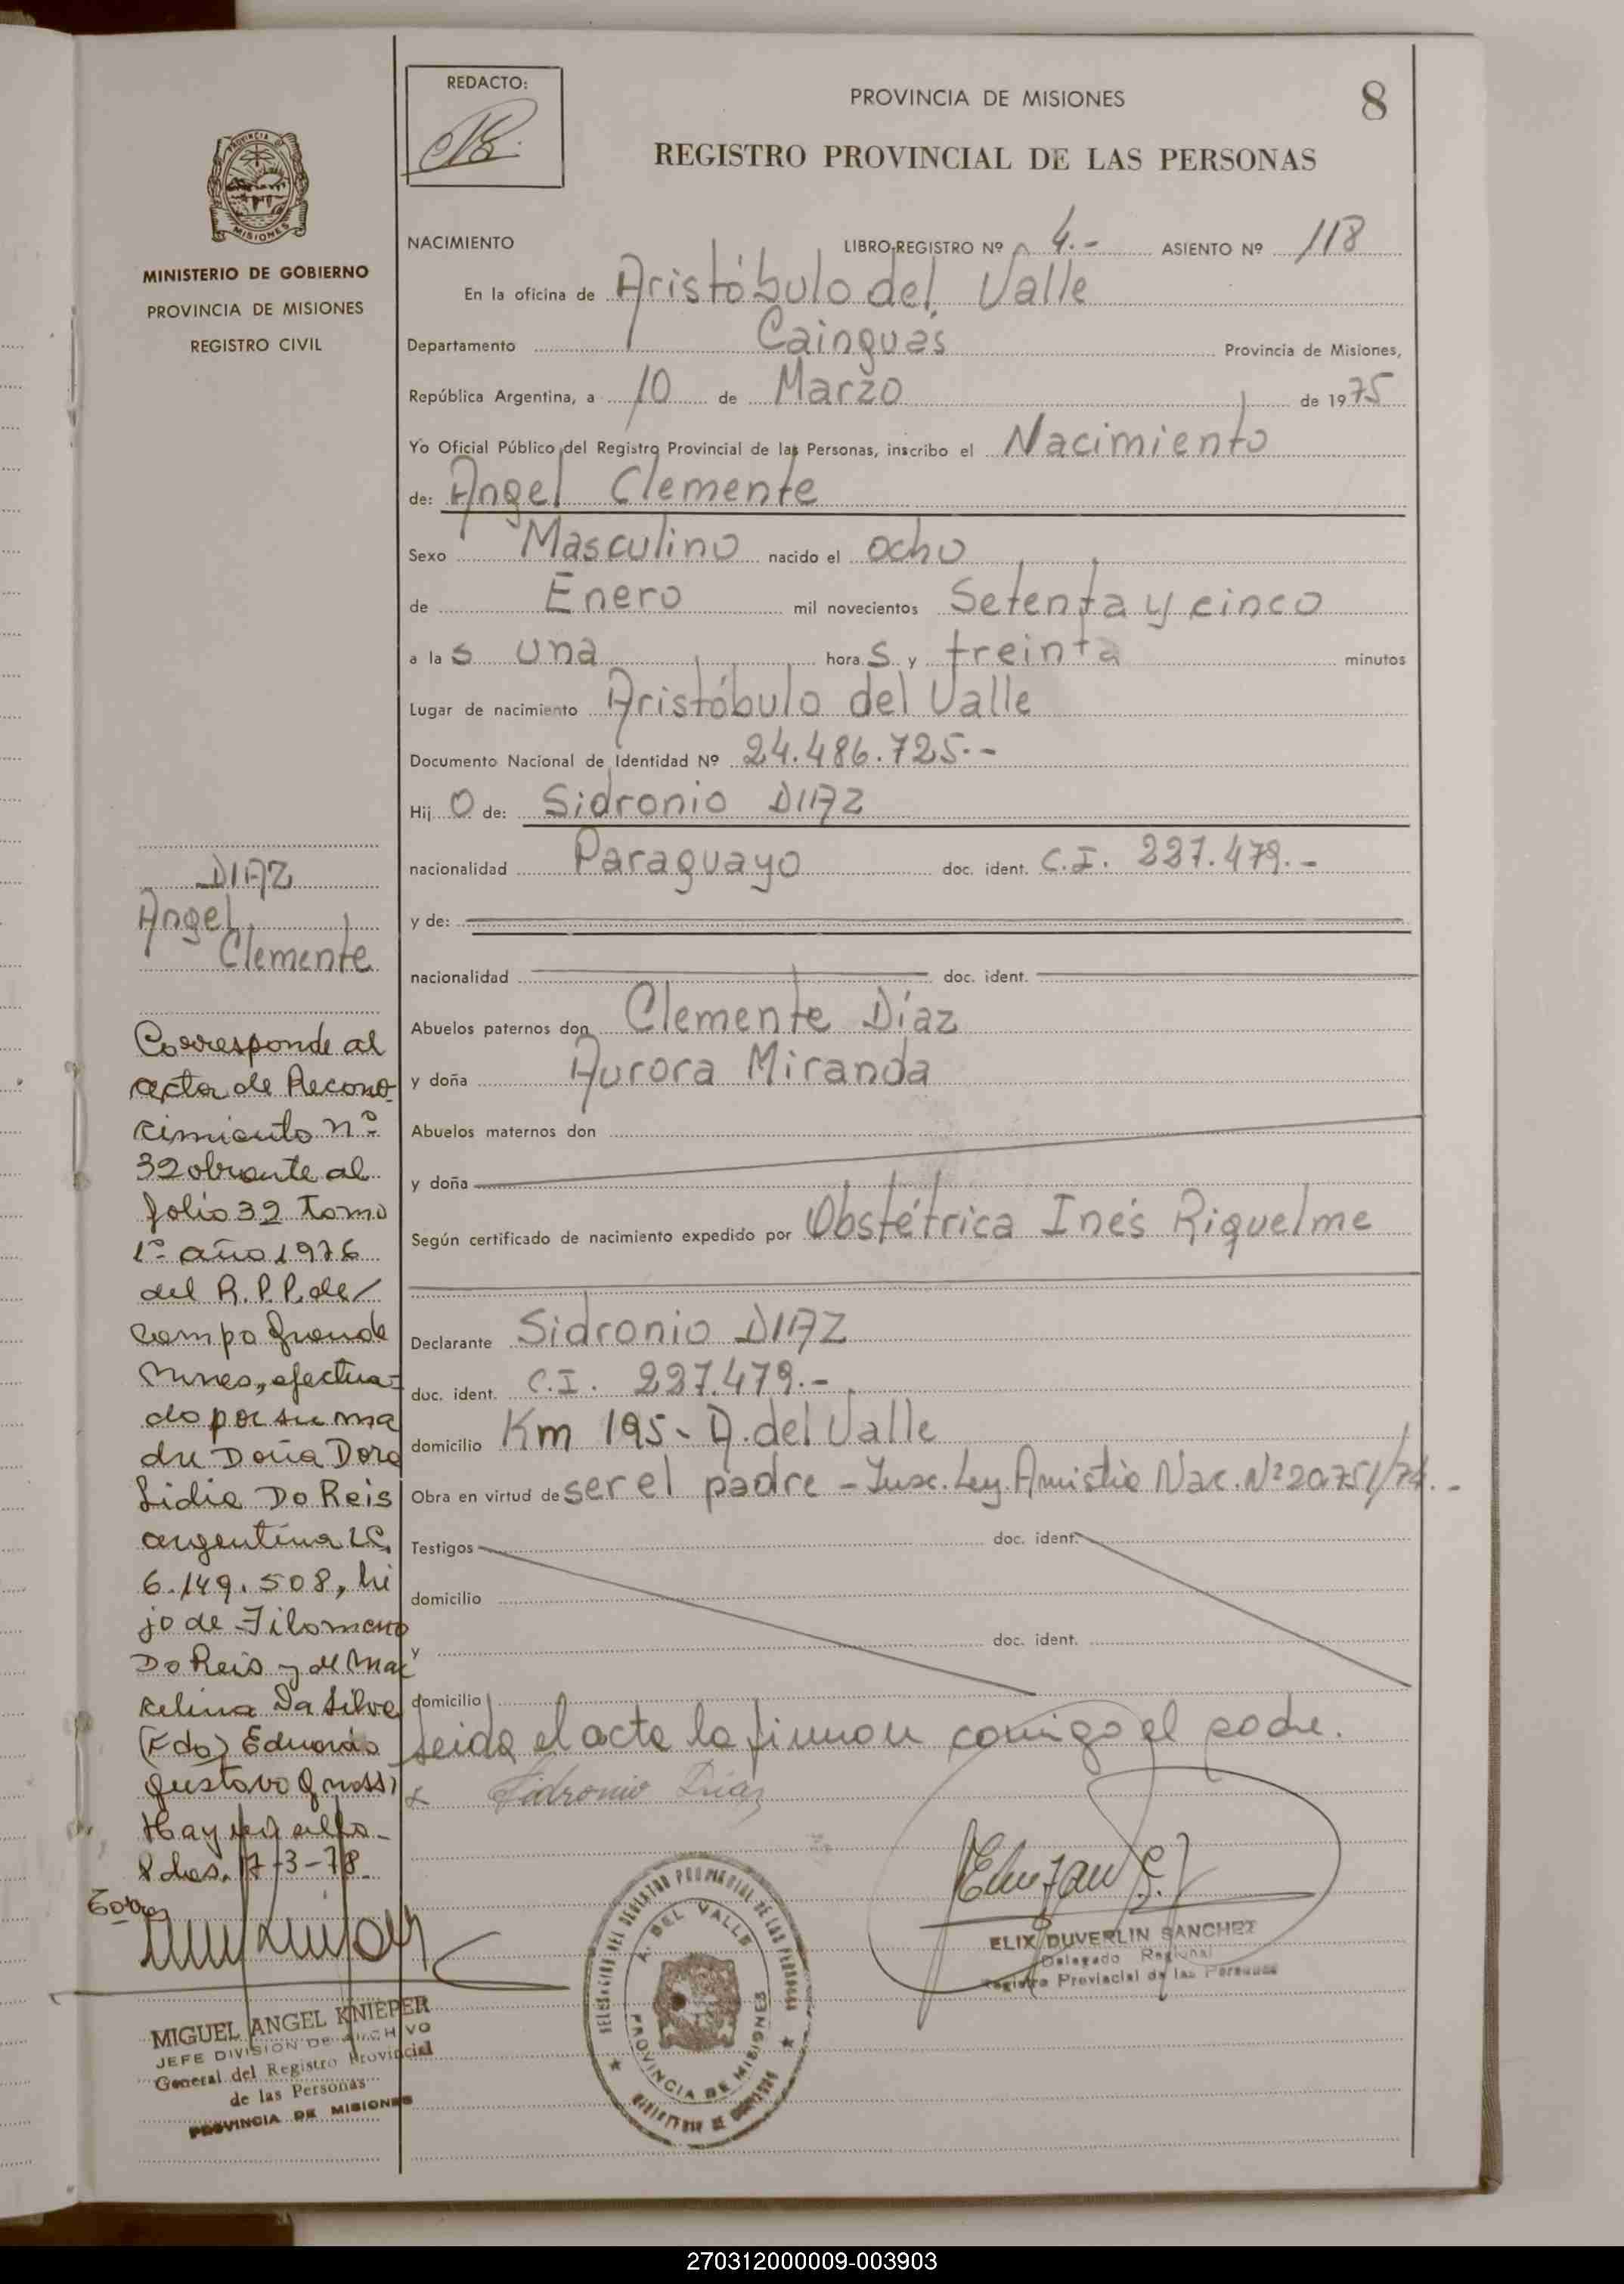 REDACTO:
PROVINCIA DE MISIONES
8
REGISTRO PROVINCIAL DE LAS PERSONAS
PROVINCIA
MISIONES
MINISTERIO DE GOBIERNO
PROVINCIA DE MISIONES
REGISTRO CIVIL
NACIMIENTO LIBRO-REGISTRO Nº 4.- ASIENTO Nº 118
En la oficina de Aristóbulo del Valle
Departamento Cainguás Provincia de Misiones,
República Argentina, a 10 de Marzo de 1975
Yo Oficial Público del Registro Provincial de las Personas, inscribo el Nacimiento
de: Angel Clemente
Sexo Masculino nacido el ocho
de Enero mil novecientos Setenta y cinco
a las una horas y treinta minutos
Lugar de nacimiento Aristóbulo del Valle
Documento Nacional de Identidad Nº 24.486.725.-
Hijo de: Sidronio DIAZ
nacionalidad Paraguayo doc. ident. C.I. 227.479.-
y de:
nacionalidad doc. ident.
Abuelos paternos don Clemente Díaz
y doña Aurora Miranda
Abuelos maternos don
y doña
Según certificado de nacimiento expedido por Obstétrica Inés Riquelme
Declarante Sidronio DIAZ
doc. ident. C.I. 227.479.-
domicilio Km 195- A. del Valle
Obra en virtud de ser el padre - Insc. Ley Amistia Nac. Nº 20.751/74.-
Testigos doc. ident.
domicilio
y doc. ident.
domicilio
Leida el acta la firman conmigo el padre.
Sidronio Diaz
DIAZ
Angel
Clemente
Corresponde al
acta de Recono-
cimiento nº
32 obrante al
folio 32 Tomo
1º año 1976
del R.P.P. de/
Campo Grande
Mnes, efectua=
do por su ma
dre Doña Dora
Lidia Do Reis
argentina LC.
6.149.508, hi
jo de Filomeno
Do Reis y de Mar
celina Da Silva
(Fdo) Eduardo
Gustavo
Hay un sello-
Pdas. 17-3-78.
MIGUEL ANGEL KNIEPER
JEFE DIVISION DE ARCHIVO
General del Registro Provincial
de las Personas
PROVINCIA DE MISIONES
DEL REGISTRO PROVINCIAL DE LAS PERSONAS
A. DEL VALLE
PROVINCIA DE MISIONES
ELIX DUVERLIN SANCHEZ
Delegado Regional
Registro Provincial de las Personas
270312000009-003903